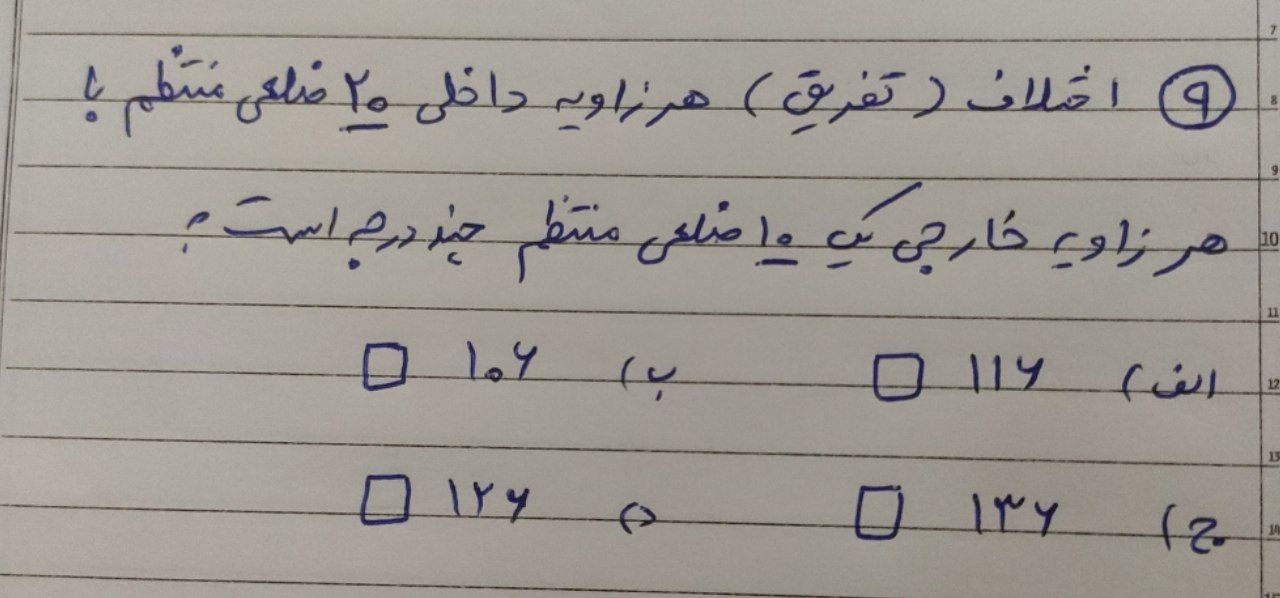 ۹ اختلاف (تفریق) هر زاویه داخلی ۲۰ ضلعی منتظم با
هر زاویه خارجی یک ۱۰ ضلعی منتظم چند درجه است؟
الف) ۱۱۶ ب) ۱۰۶
ج) ۱۳۶ د) ۱۲۶
7
8
9
10
11
12
13
14
15